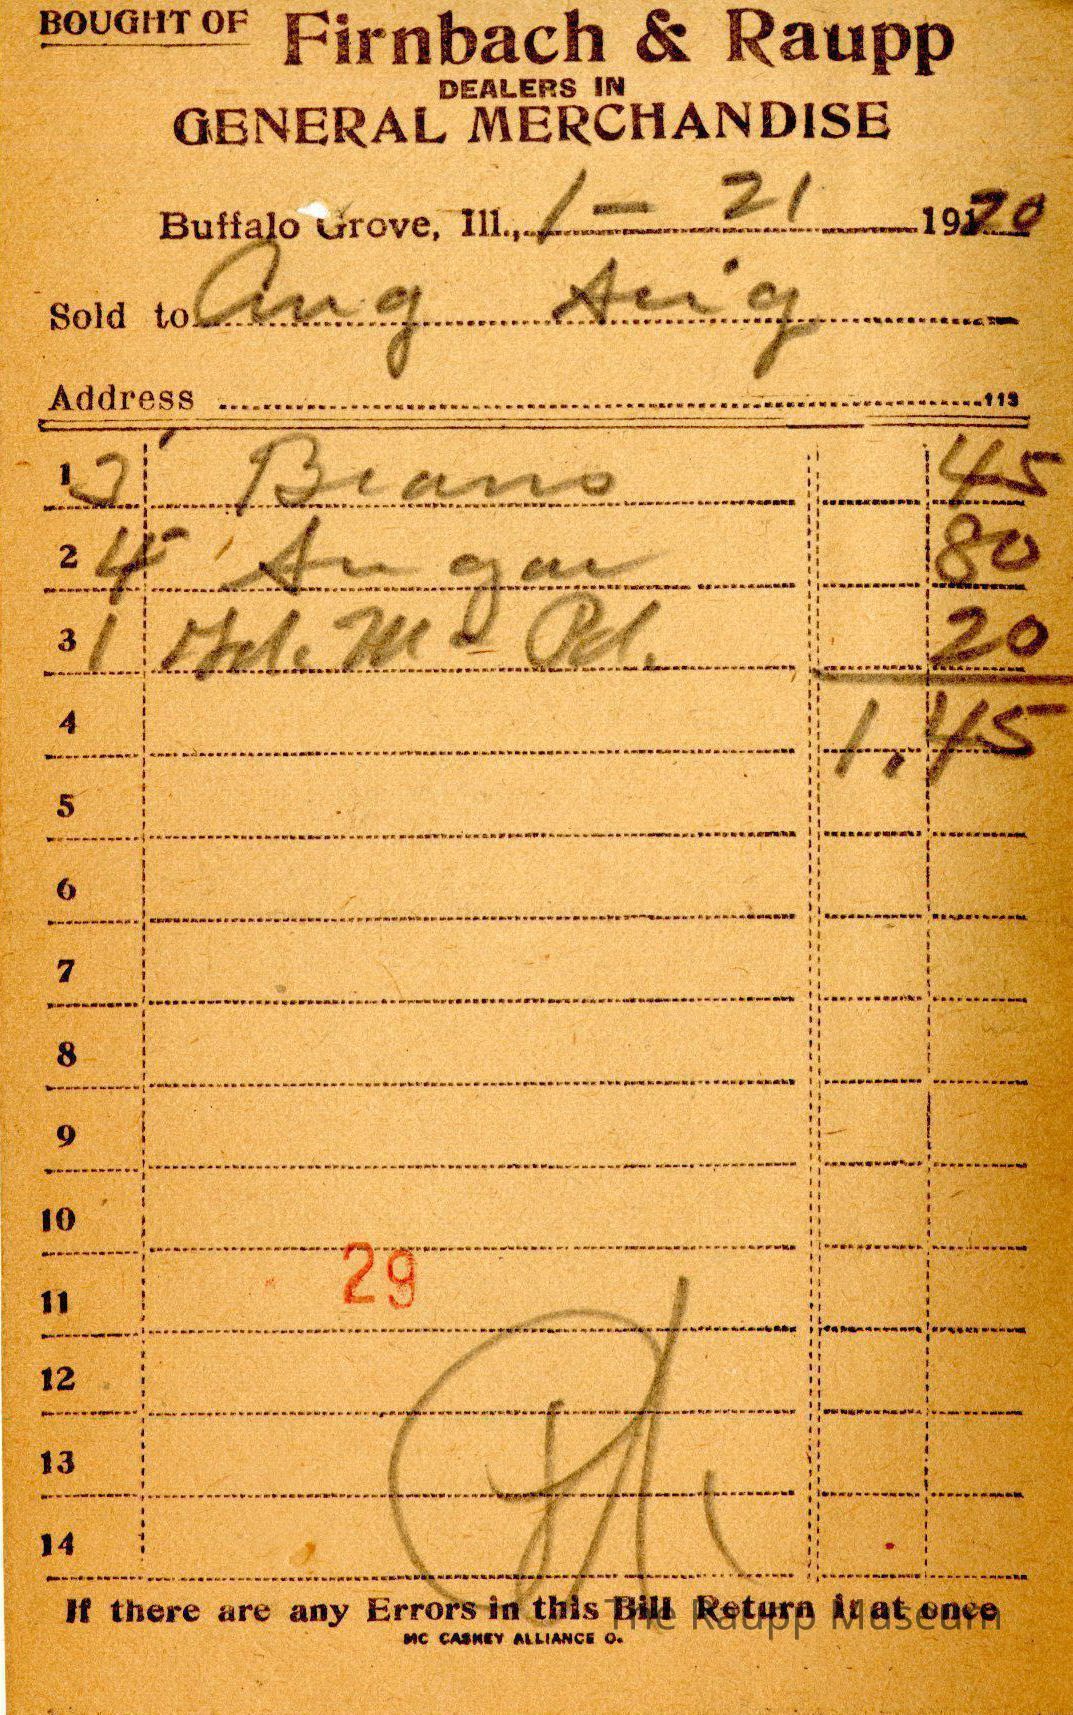 BOUGHT OF Firnbach & Raupp
DEALERS IN
GENERAL MERCHANDISE
Buffalo Grove, Ill., 1 - 21 1920
Sold to Aug Seig
Address 113
1 3 Beans 45
2 4 Sugar 80
3 1 20
4 1,45
5
6
7
8
9
10
29
11
12
13
14
If there are any Errors in this Bill Return it at once
The Raupp Museum
MC CASKEY ALLIANCE O.